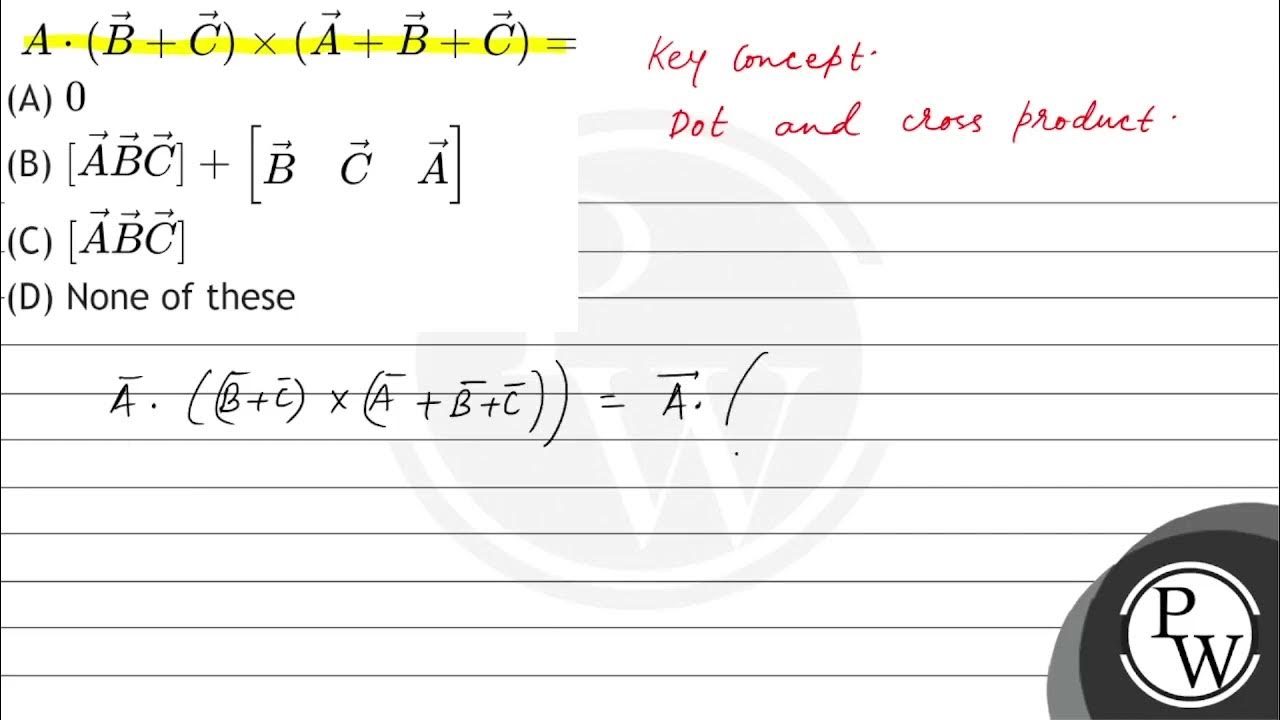 A · (B⃗ + C⃗) × (A⃗ + B⃗ + C⃗) =
(A) 0
(B) [A⃗B⃗C⃗] + [B⃗ C⃗ A⃗]
(C) [A⃗B⃗C⃗]
(D) None of these
Key Concept.
Dot and cross product.
A̅ . ((B̅+C̅) × (A̅ + B̅+C̅)) = A⃗. (
PW
PW